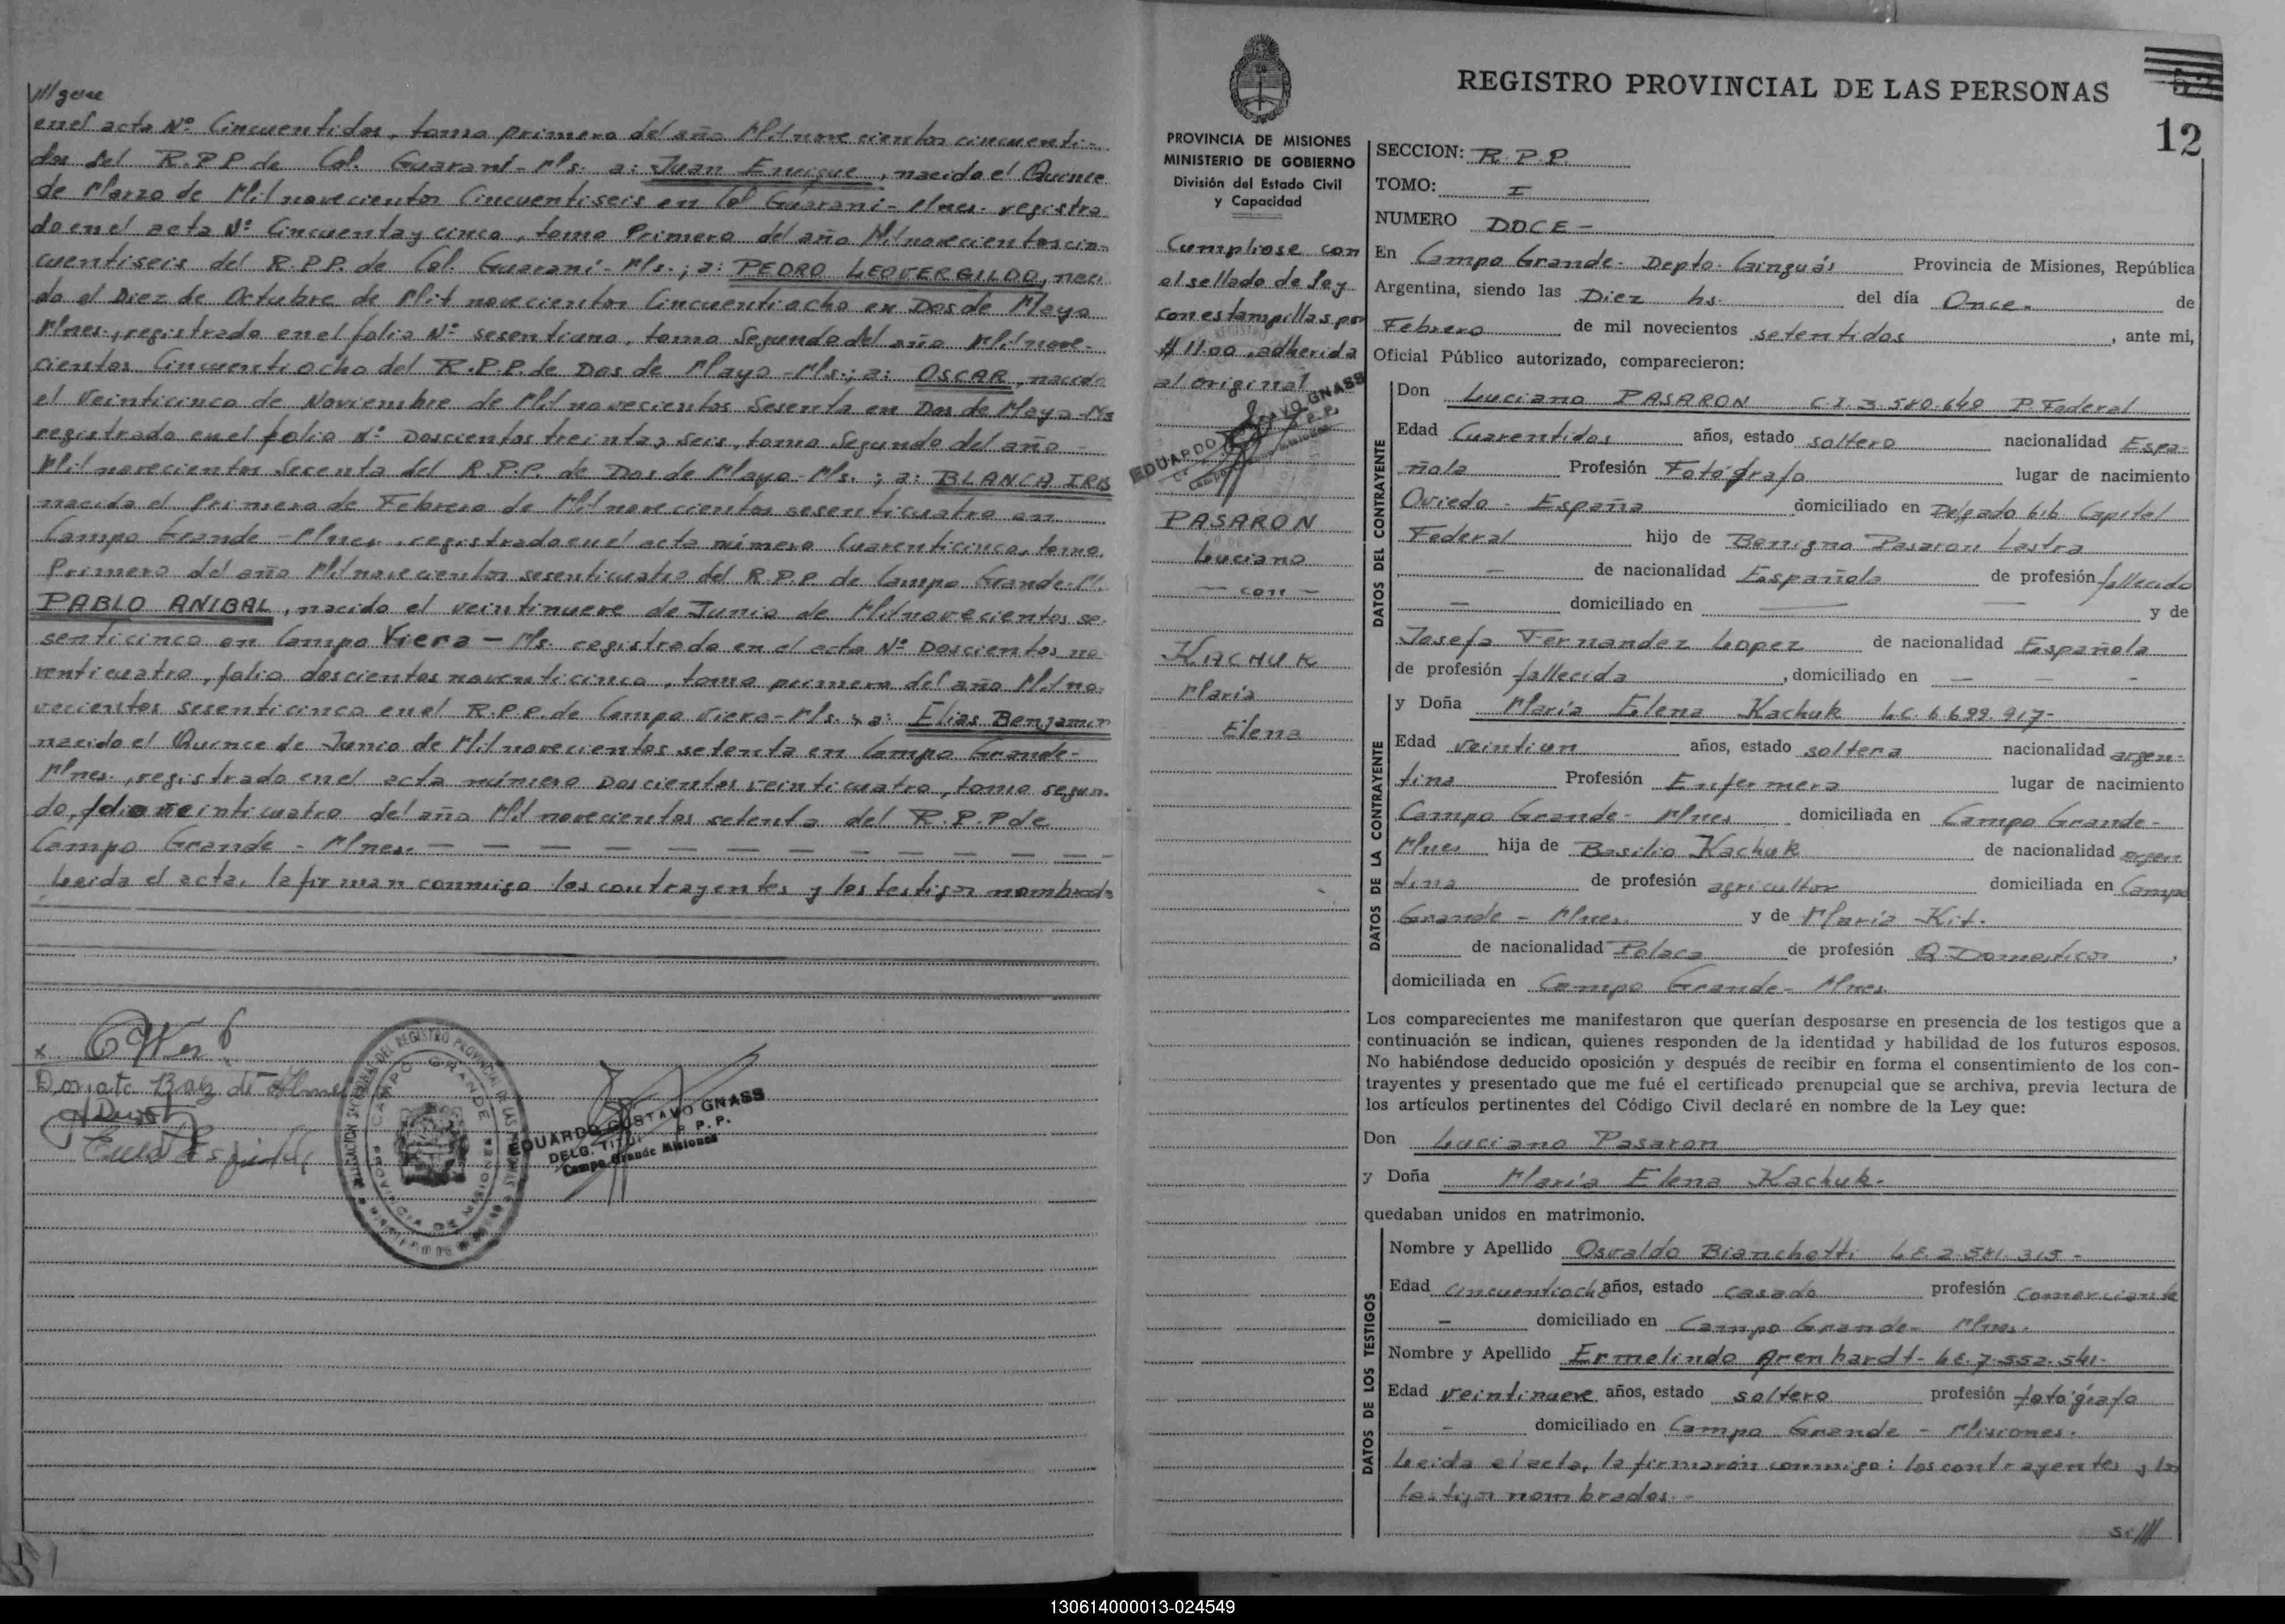 en el acta Nº Cincuentidos, tomo primero del año Mil novecientos cincuenti-
dos del R.P.P de Col. Guaraní-Ms. a: Juan Enrique, nacido el Quince
de Marzo de Mil novecientos Cincuentiseis en Col Guaraní-Mnes. registra
do en el acta Nº Cincuenta y cinco, tomo Primero del año Mil novecientos cin-
cuentiseis del R.P.P. de Col. Guaraní-Ms.; a: PEDRO LEOVERGILDO, naci
do el Diez de Octubre de Mil novecientos Cincuentiocho en Dos de Mayo
Mnes., registrado en el folio Nº sesentiuno, tomo Segundo del año Mil nove-
cientos Cincuentiocho del R.P.P. de Dos de Mayo-Ms.; a: OSCAR, nacido
el Veinticinco de Noviembre de Mil novecientos Sesenta en Dos de Mayo-Ms
registrado en el folio Nº Doscientos treinta y seis, tomo Segundo del año-
Mil novecientos Secenta del R.P.P. de Dos de Mayo-Ms.; a: BLANCA IRIS
nacida el Primero de Febrero de Mil novecientos sesenticuatro en
Campo Grande-Mnes, registrado en el acta número Cuarenticinco, tomo
Primero del año Mil novecientos sesenticuatro del R.P.P. de Campo Grande-M.
PABLO ANIBAL, nacido el veintinueve de Junio de Mil novecientos se-
senticinco en Campo Viera-Ms. registrado en el acta Nº Doscientos no
venticuatro, folio doscientos noventicinco, tomo primero del año Mil no-
vecientos sesenticinco en el R.P.P. de Campo Viera-Ms. y a: Elias Benjamin
nacido el Quince de Junio de Mil novecientos setenta en Campo Grande-
Mnes., registrado en el acta número Doscientos veinticuatro, tomo segun-
do, folio veinticuatro del año Mil novecientos setenta del R.P.P de
Campo Grande - Mnes. — — — — — — — — — — — —
Leida el acta, la firman conmigo los contrayentes y los testigos nombrado
EDUARDO GUSTAVO GNASS
DELG. TITUL R.P.P.
Campo Grande Misiones
CAMPO GRANDE
PROVINCIA DE MISIONES
REGISTRO PROVINCIAL DE LAS PERSONAS
52
12
PROVINCIA DE MISIONES
MINISTERIO DE GOBIERNO
División del Estado Civil
y Capacidad
Cumpliose con
el sellado de ley
con estampillas por
$ 11.00 adherida
al original
EDUARDO GUSTAVO GNASS
PASARON
Luciano
— con —
KACHUK
María
Elena
SECCION: R.P.P.
TOMO: I
NUMERO DOCE-
En Campo Grande- Depto. Cainguás Provincia de Misiones, República
Argentina, siendo las Diez hs. del día Once- de
Febrero de mil novecientos setentidos, ante mi,
Oficial Público autorizado, comparecieron:
DATOS DEL CONTRAYENTE
Don Luciano PASARON C.I. 3.580.640 P. Federal
Edad Cuarentidos años, estado soltero nacionalidad Espa-
ñola Profesión Fotógrafo lugar de nacimiento
Oviedo - España domiciliado en Delgado 616 Capital
Federal hijo de Benigno Pasaron Lastra
- de nacionalidad Española de profesión fallecido
- domiciliado en — — y de
Josefa Fernandez Lopez de nacionalidad Española
de profesión fallecida, domiciliado en - - -
DATOS DE LA CONTRAYENTE
y Doña María Elena Kachuk L.C. 6.699.917-
Edad veintiun años, estado soltera nacionalidad argen-
tina Profesión Enfermera lugar de nacimiento
Campo Grande- Mnes domiciliada en Campo Grande-
Mnes hija de Basilio Kachuk de nacionalidad argen
tina de profesión agricultor domiciliada en Campo
Grande - Mnes. y de María Kit.
de nacionalidad Polaca de profesión Q. Domesticos,
domiciliada en Campo Grande- Mnes
Los comparecientes me manifestaron que querían desposarse en presencia de los testigos que a
continuación se indican, quienes responden de la identidad y habilidad de los futuros esposos.
No habiéndose deducido oposición y después de recibir en forma el consentimiento de los con-
trayentes y presentado que me fué el certificado prenupcial que se archiva, previa lectura de
los artículos pertinentes del Código Civil declaré en nombre de la Ley que:
Don Luciano Pasaron
y Doña María Elena Kachuk-
quedaban unidos en matrimonio.
DATOS DE LOS TESTIGOS
Nombre y Apellido Osvaldo Bianchetti L.E. 2.581.315-
Edad Cincuentiocho años, estado casado profesión Comerciante
- domiciliado en Campo Grande- Mnes.
Nombre y Apellido Ermelindo Arenhardt- L.E. 7.552.541-
Edad veintinueve años, estado soltero profesión fotógrafo
- domiciliado en Campo Grande - Misiones.
Leida el acta, la firmaron conmigo: los contrayentes y los
testigos nombrados.-
130614000013-024549